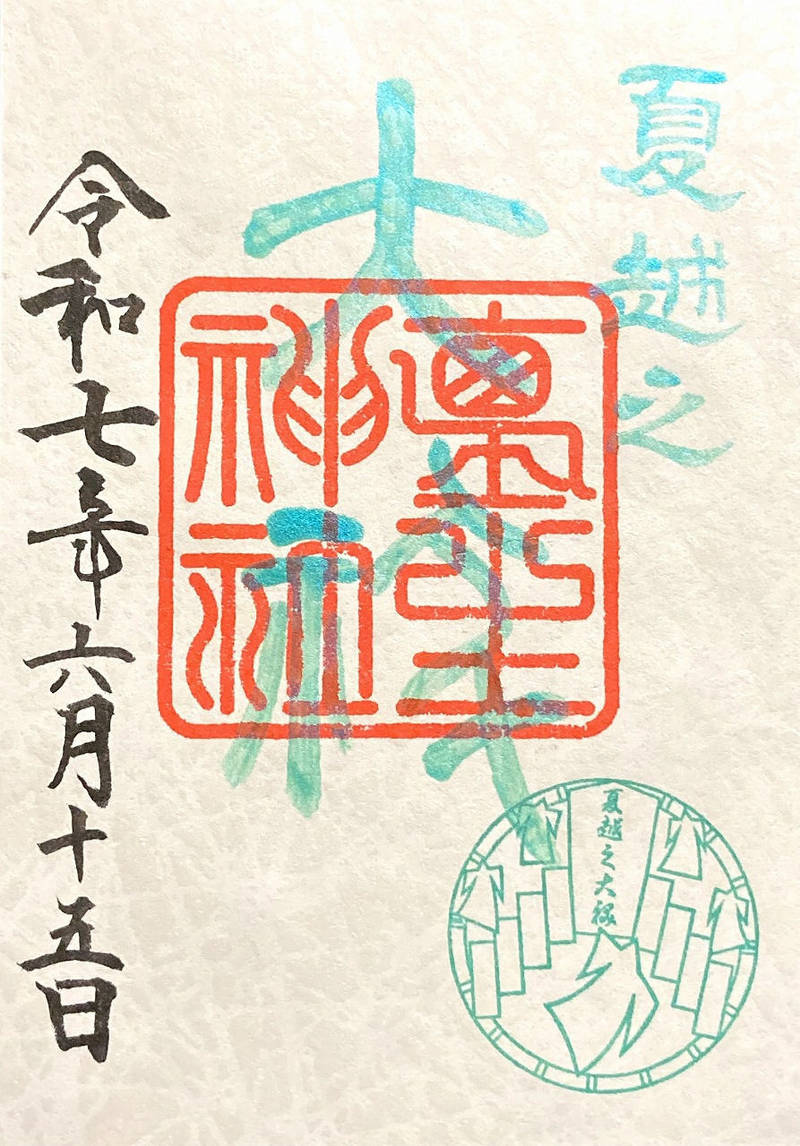 夏越之
大祓
神社
令和七年六月十五日
夏越之大祓